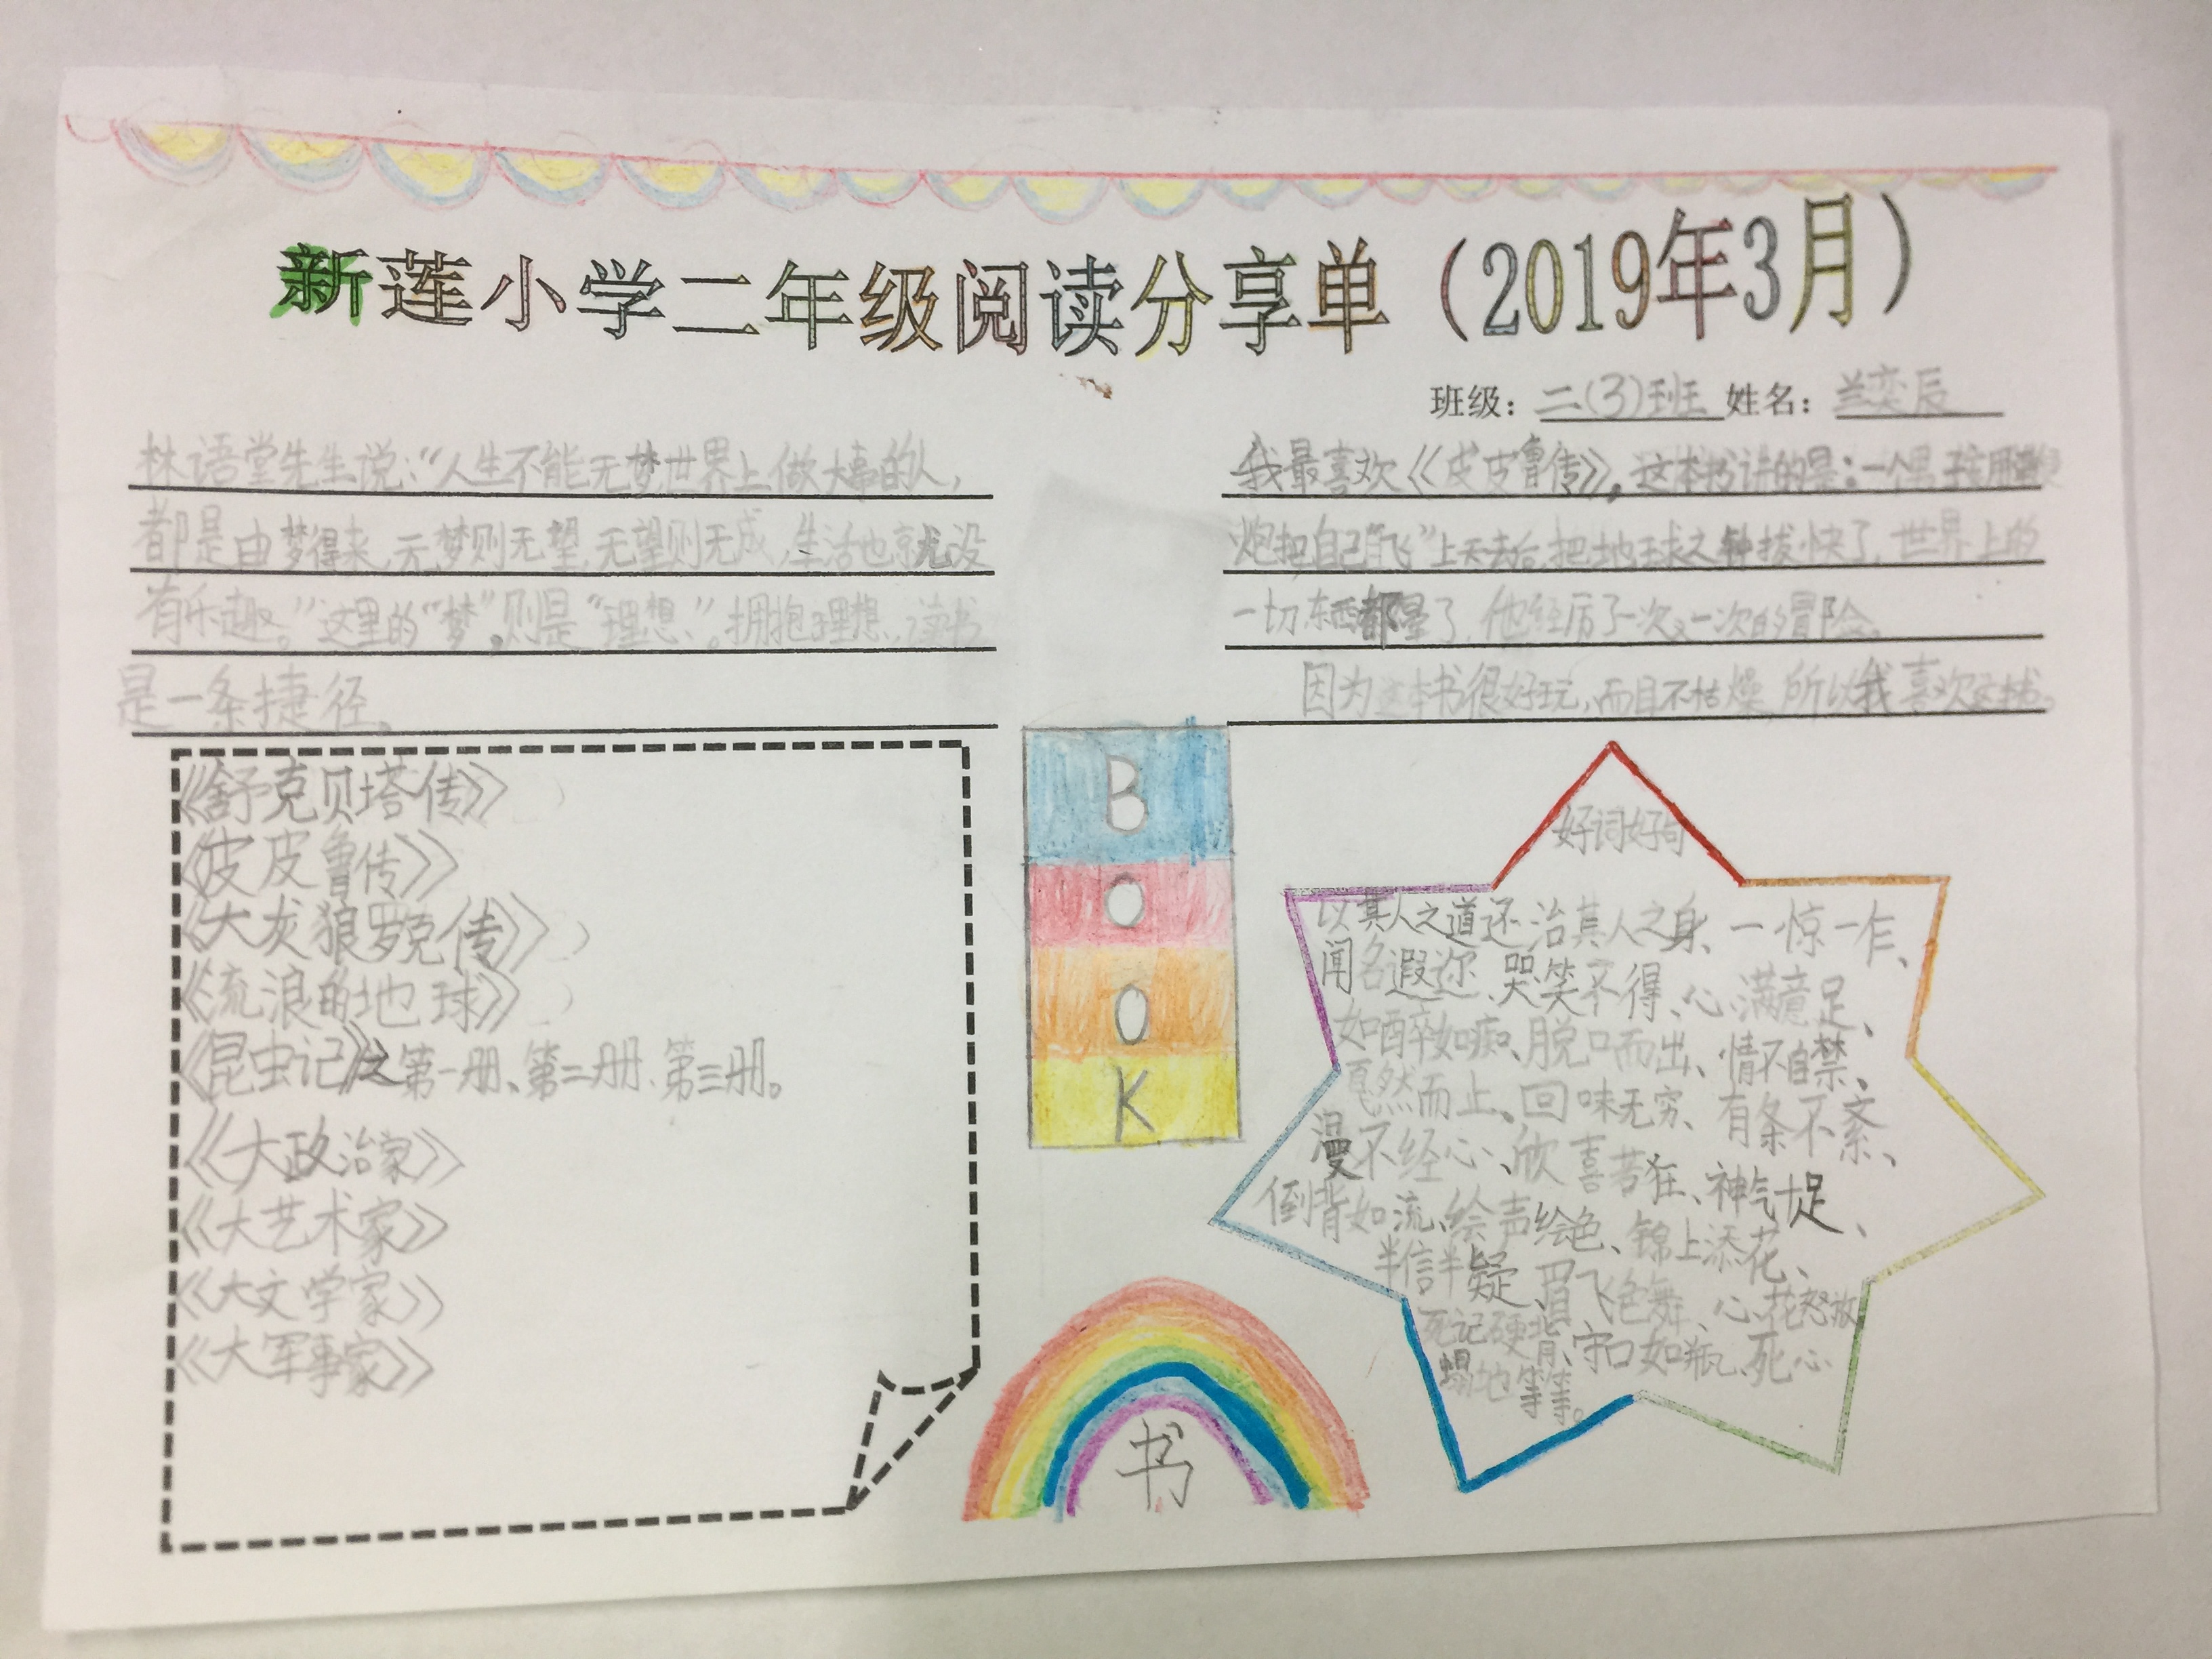 新莲小学二年级阅读分享单（2019年3月）
班级：二(3)班 姓名：兰奕辰
林语堂先生说：“人生不能无梦，世界上做大事的人，
都是由梦得来，无梦则无望，无望则无成，生活也就没
有乐趣。”这里的“梦”，则是“理想”。拥抱理想，读书
是一条捷径。
我最喜欢《皮皮鲁传》，这本书讲的是：一个男孩用
炮把自己“飞”上天去后，把地球之钟拨快了，世界上的
一切东西都晕了，他经历了一次又一次的冒险。
因为这本书很好玩，而且不枯燥，所以我喜欢这书。
《舒克贝塔传》
《皮皮鲁传》
《大灰狼罗克传》
《流浪的地球》
《昆虫记》之第一册、第二册、第三册。
《大政治家》
《大艺术家》
《大文学家》
《大军事家》
B
O
O
K
书
好词好句
以其人之道还治其人之身、一惊一乍、
闻名遐迩、哭笑不得、心满意足、
如醉如痴、脱口而出、情不自禁、
戛然而止、回味无穷、有条不紊、
漫不经心、欣喜若狂、神气十足、
倒背如流、绘声绘色、锦上添花、
半信半疑、眉飞色舞、心花怒放
死记硬背、守口如瓶、死心
塌地等等。